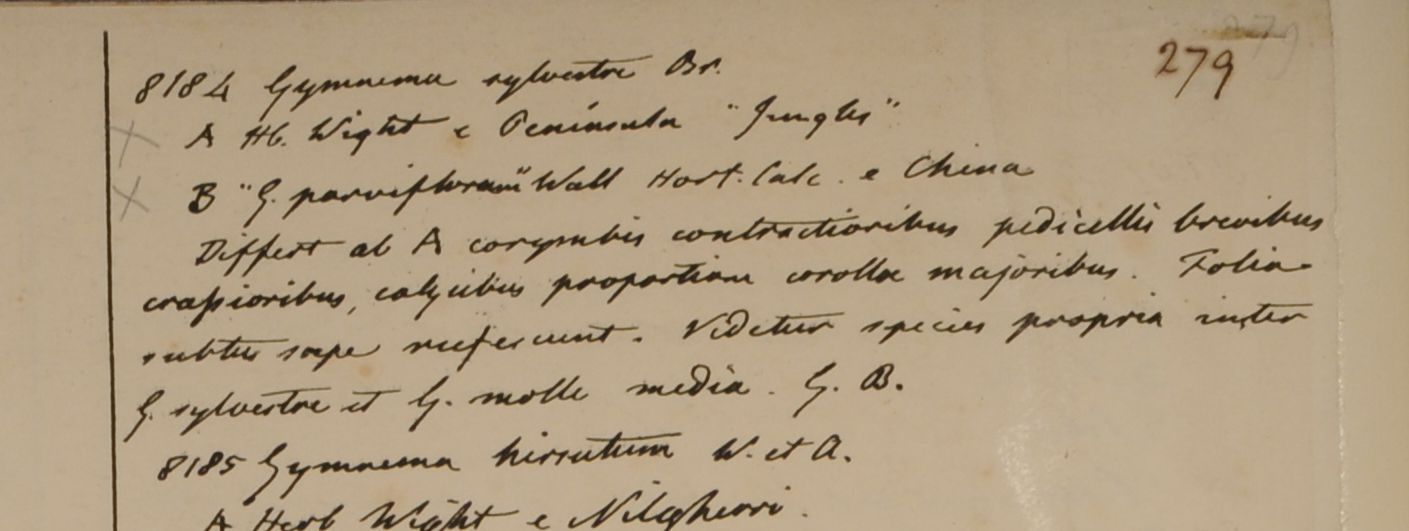 279
8184 Gymnema sylvestre Br.
A Hb. Wight e Peninsula "Jungles"
B "G. parviflorum" Wall Hort. Calc. e China
Differt ab A corymbis contractioribus pedicellis brevibus
crassioribus, calycibus proportione corollae majoribus. Folia
subtus saepe rufescunt. Videtur species propria inter
G. sylvestre et G. molle media. G. B.
8185 Gymnema hirsutum W. et A.
A Herb Wight e Nilgherri.